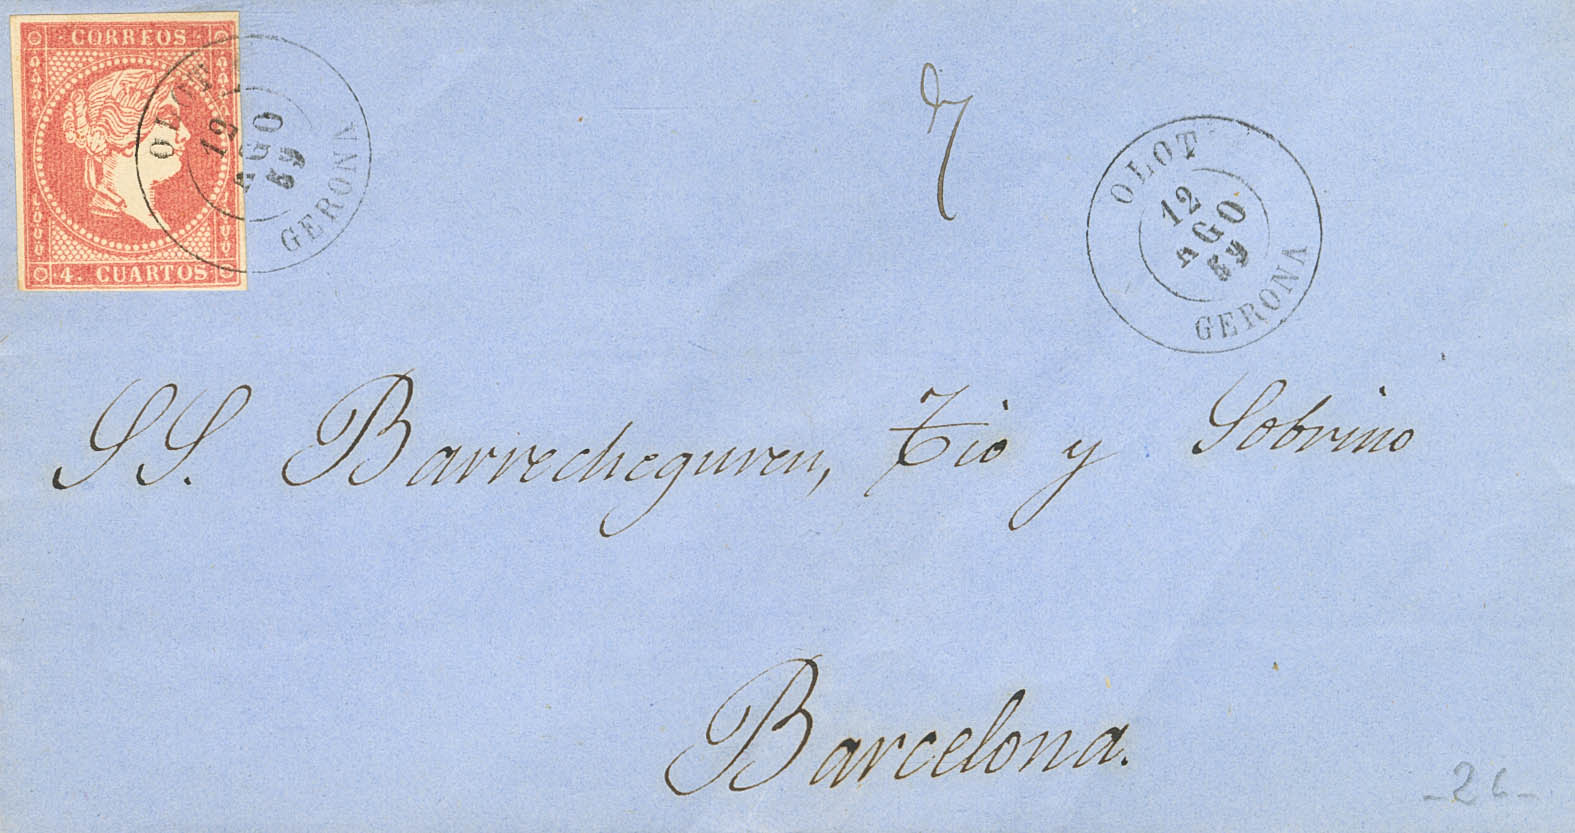 CORREOS
4. CUARTOS
OLOT
12
AGO
59
GERONA
OLOT
12
AGO
59
GERONA
SS. Barrecheguren, Tio y Sobrino
Barcelona.
-26-